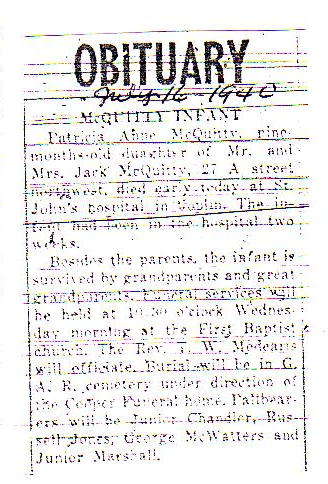 OBITUARY
July 16 1940
McQUITTY INFANT
Patricia Anne McQuitty, nine-
months-old daughter of Mr. and
Mrs. Jack McQuitty, 27 A street
northwest, died early today at St.
John's hospital in Joplin. The in-
fant had been in the hospital two
weeks.
Besides the parents, the infant is
survived by grandparents and great
grandparents. Funeral services will
be held at 10:30 o'clock Wednes-
day morning at the First Baptist
church. The Rev. T. W. Medearis
will officiate. Burial will be in G.
A. R. cemetery under direction of
the Cooper Funeral home. Pallbear-
ers will be Junior Chandler, Rus-
sell Jones, George McWatters and
Junior Marshall.